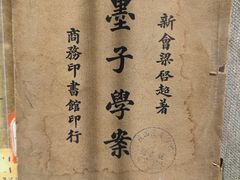 新會梁啓超著
墨子學案
商務印書館印行